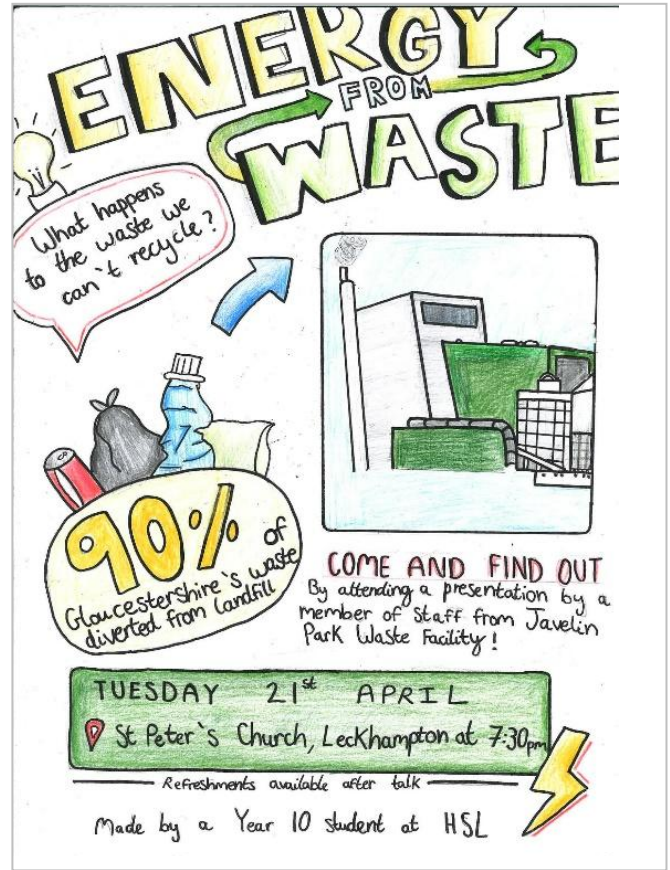 ENERGY
FROM
WASTE
What happens
to the waste we
can't recycle?
90% of
Gloucestershire's waste
diverted from landfill
COME AND FIND OUT
By attending a presentation by a
member of Staff from Javelin
Park Waste Facility!
TUESDAY 21st APRIL
St Peter's Church, Leckhampton at 7:30pm
Refreshments available after talk
Made by a Year 10 student at HSL